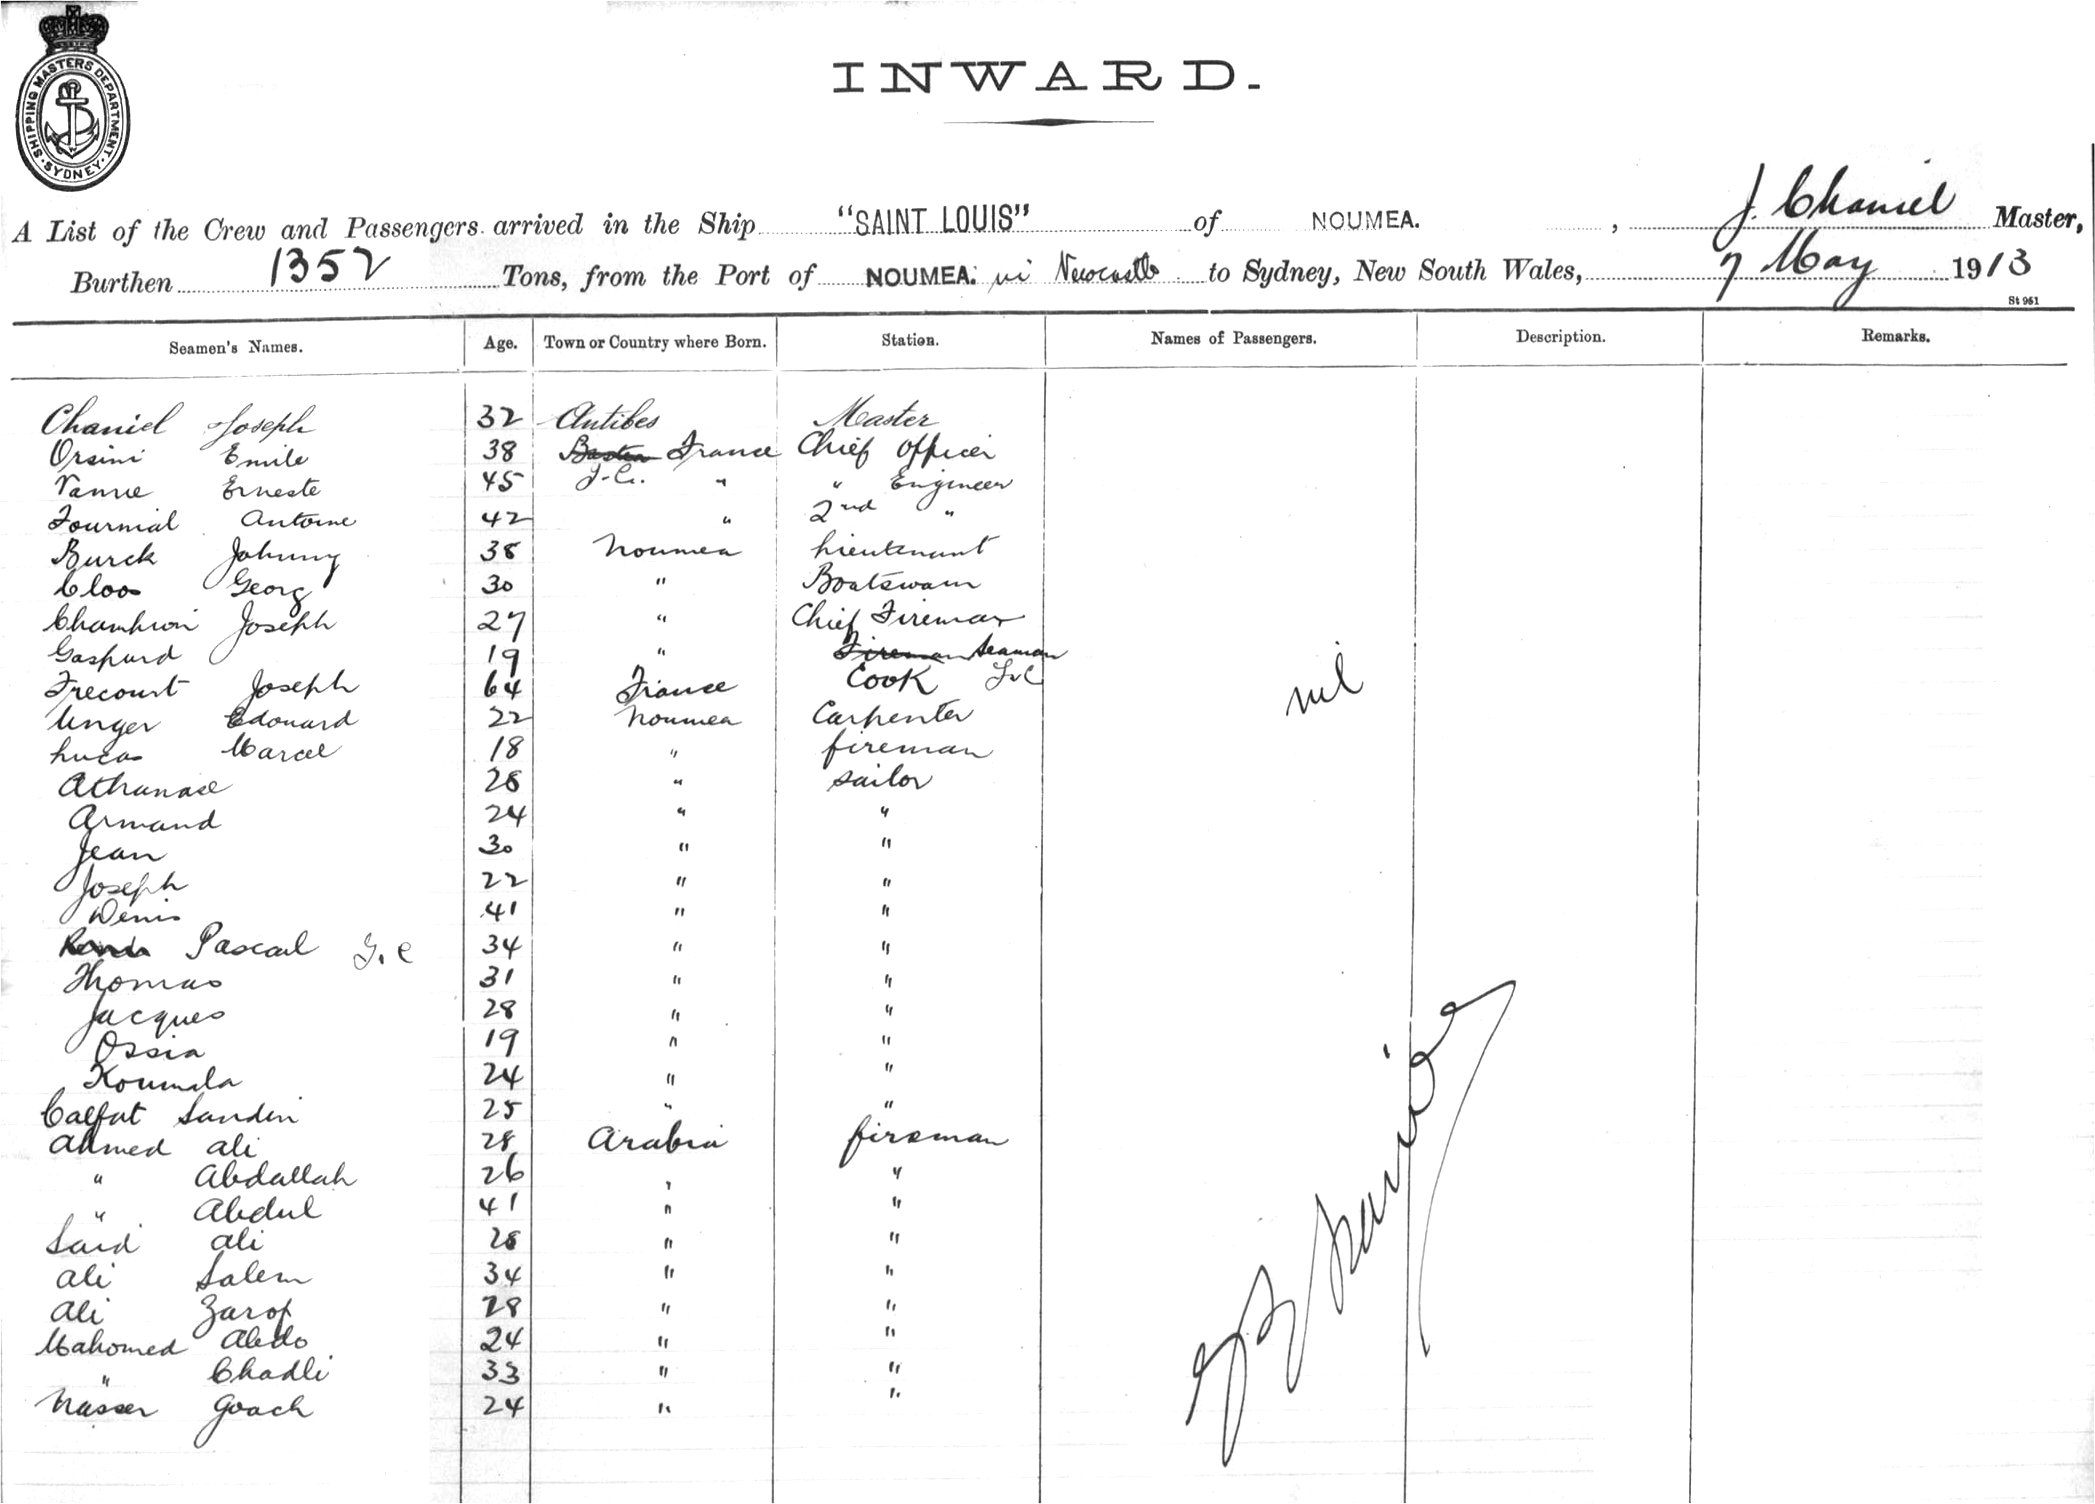 SHIPPING MASTERS DEPARTMENT · SYDNEY ·
INWARD.
A List of the Crew and Passengers arrived in the Ship "SAINT LOUIS" of NOUMEA. , J. Chaniel Master,
Burthen 1352 Tons, from the Port of NOUMEA. Newcastle to Sydney, New South Wales, 7 May 1913
St 961
Seamen's Names. Age. Town or Country where Born. Station. Names of Passengers. Description. Remarks.
Chaniel Joseph 32 Antibes Master
Orsini Emile 38 France Chief Officer
Erneste 45 J.C. " " Engineer
Fournial Antoine 42 " 2nd "
Burck Johnny 38 Noumea Lieutenant
Cloos Georg 30 " Boatswain
Joseph 27 " Chief Fireman
Gaspard 19 " Fireman Seaman
Trecourt Joseph 64 France Cook J.C
Unger Edouard 22 Noumea Carpenter
nil
Lucas Marcel 18 " fireman
Athanase 28 " sailor
Armand 24 " "
Jean 30 " "
Joseph 22 " "
Denis 41 " "
Pascal J.C 34 " "
Thomas 31 " "
Jacques 28 " "
Ossia 19 " "
Koumala 24 " "
Calfat Sandin 25 " "
Ahmed Ali 28 Arabia fireman
" Abdallah 26 " "
" Abdul 41 " "
Said Ali 28 " "
Ali Salem 34 " "
Ali Zarof 28 " "
Mahomed Abdo 24 " "
" Chadli 33 " "
Nasser Goach 24 " "